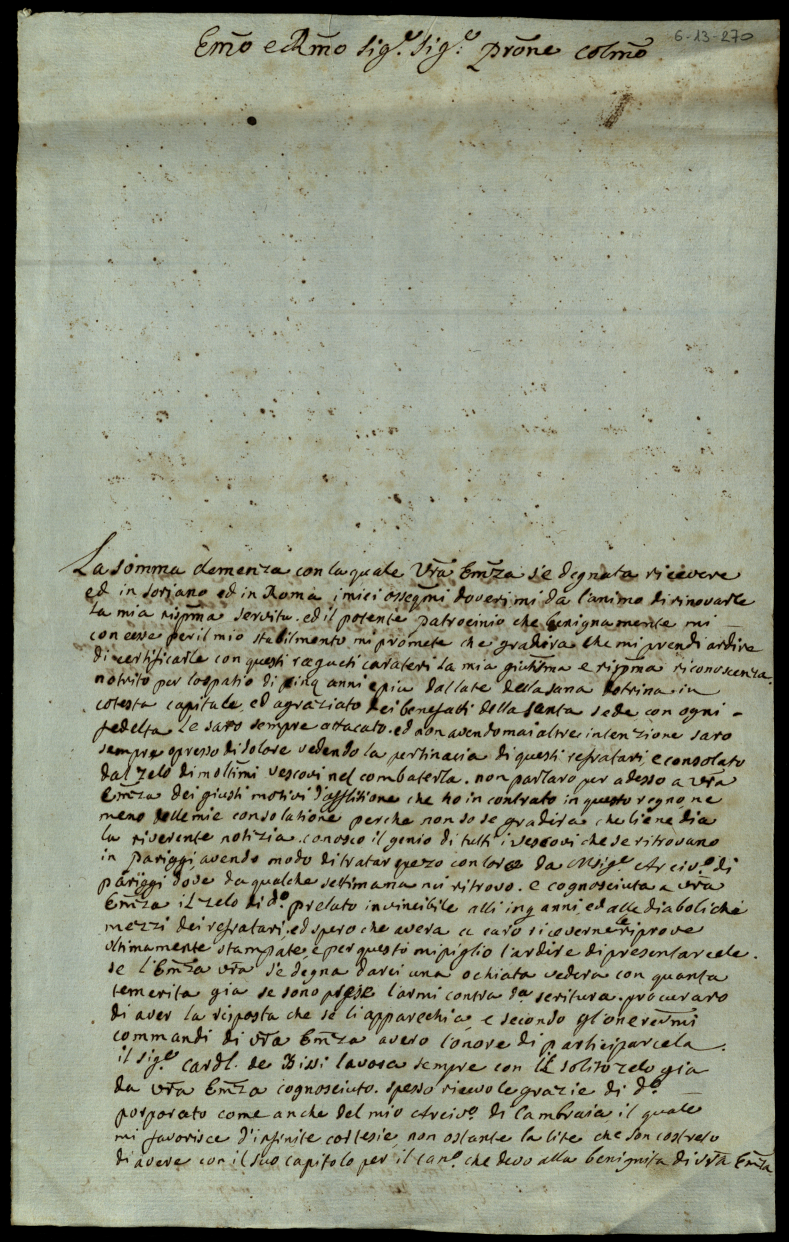 6-13-270
Em̃o e Rm̃o Sig.r Sig.r prõne colm̃o
La somma clemenza con la quale Vr̃a Em̃za s'e degnata ricevere
ed in Soriano ed in Roma i miei osseqm̃i doveri mi da l'animo di rinovarle
La mia rispm̃a servitu. ed il potente patrocinio che benignamente mi
concesse per il mio stabilmento mi promete che gradira che mi prendi ardire
di certificarle con questi carateri la mia e rispm̃a riconoscenza.
notrito per lo spatio di cinq anni e piu dal late della sana dotrina in
cotesta capitale, ed agraziato dei benefatti della santa sede con ogni -
fedelta Le saro sempre attacato. ed non avendo mai altre intenzione saro
sempre opresso di dolore vedendo la pertinacia di questi refratari, e consolato
dal zelo di moltm̃i vescovi nel combaterla. non parlaro per adesso a vr̃a
Em̃za dei giusti motivi d'afflitione che ho incontrato in questo regno, ne
meno delle mie consolatione perche non so se gradira che liene dia
la riverente notizia. conosco il genio di tutti i vescovi che se ritrovano
in pariggi, avendo modo di tratar spezo con loro da Msig.r Arciv.o di
pariggi dove da qualche settimana mi ritrovo. e cognosciuta a vr̃a
Em̃za il zelo di d.o prelato invincibile alli inganni, ed alle diaboliche
mezzi dei refratari. ed spero che avera a caro ricoverne le riprove
ultimamente stampate, e per questo mi piglio l'ardire di presentarcele.
se l'Em̃za vr̃a s'e degna darci una ochiata vedera con quanta
temerita gia se sono prese l'armi contra d.a scritura. procuraro
di aver la risposta che se li apparechia, e secondo gl'
commandi di vr̃a Em̃za avero l'onore di participarcela.
il sig.r Cardl. de Bissi lavora sempre con il solito zelo gia
da vr̃a Em̃za cognosciuto. spesso ricevo le grazie di d.o
porporato come anche del mio Arciv.o di Cambraia il quale
mi favorisce d'infinite cortesie, non ostante la lite che son costreto
di avere con il suo capitolo per il can.o che devo alla benignita di vr̃a Em̃za